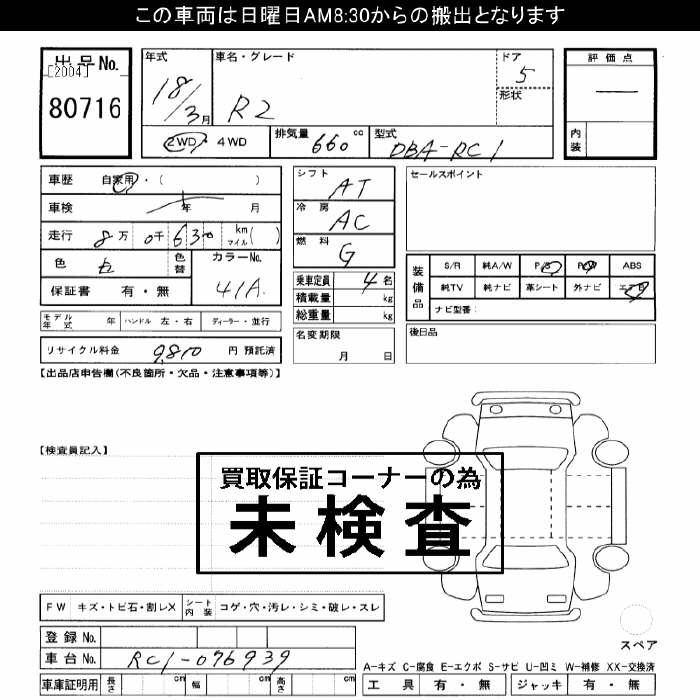 この車両は日曜日AM8:30からの搬出となります
出品No.
[2004]
80716
年式
18/3月
車名・グレード
R2
ドア
5
形状
評価点
―
内装
2WD・4WD
排気量 660 cc
型式 DBA-RC1
車歴 自家用・( )
車検 年 月
走行 8万 0千 630 km マイル( )
色 白 色替
カラーNo.
41A
保証書 有・無
モデル年式 年 ハンドル 左・右 ディーラー・並行
リサイクル料金 9,810 円 預託済
シフト AT
冷房 AC
燃料 G
乗車定員 4名
積載量 kg
総重量 kg
名変期限
月 日
セールスポイント
装備品
S/R 純A/W P/S P/W ABS
純TV 純ナビ 革シート 外ナビ エアB
ナビ型番:
後日品
【出品店申告欄(不良箇所・欠品・注意事項等)】
【検査員記入】
買取保証コーナーの為
未検査
FW キズ・トビ石・割レX シート内装 コゲ・穴・汚レ・シミ・破レ・スレ
登録No.
車台No. RC1-076939
車庫証明用 長さ cm 幅 cm 高さ cm
スペア
A-キズ C-腐食 E-エクボ S-サビ U-凹ミ W-補修 XX-交換済
工具 有・無 ジャッキ 有・無